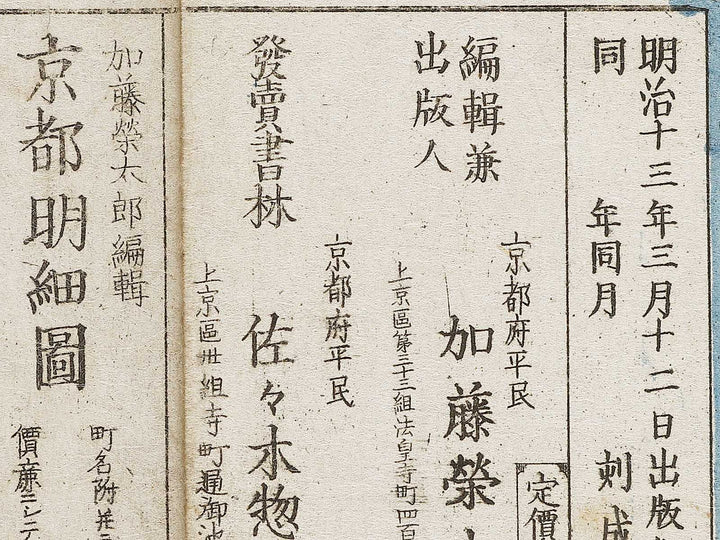 明治十三年三月十二日出版
同年同月刻成
編輯兼
出版人
京都府平民
加藤榮
上京區第三十三組法皇寺町四百
定價
發賣書林
京都府平民
佐々木惣
上京區卅組寺町通御池
加藤榮太郎編輯
京都明細圖
町名附并
價廉ニシテ